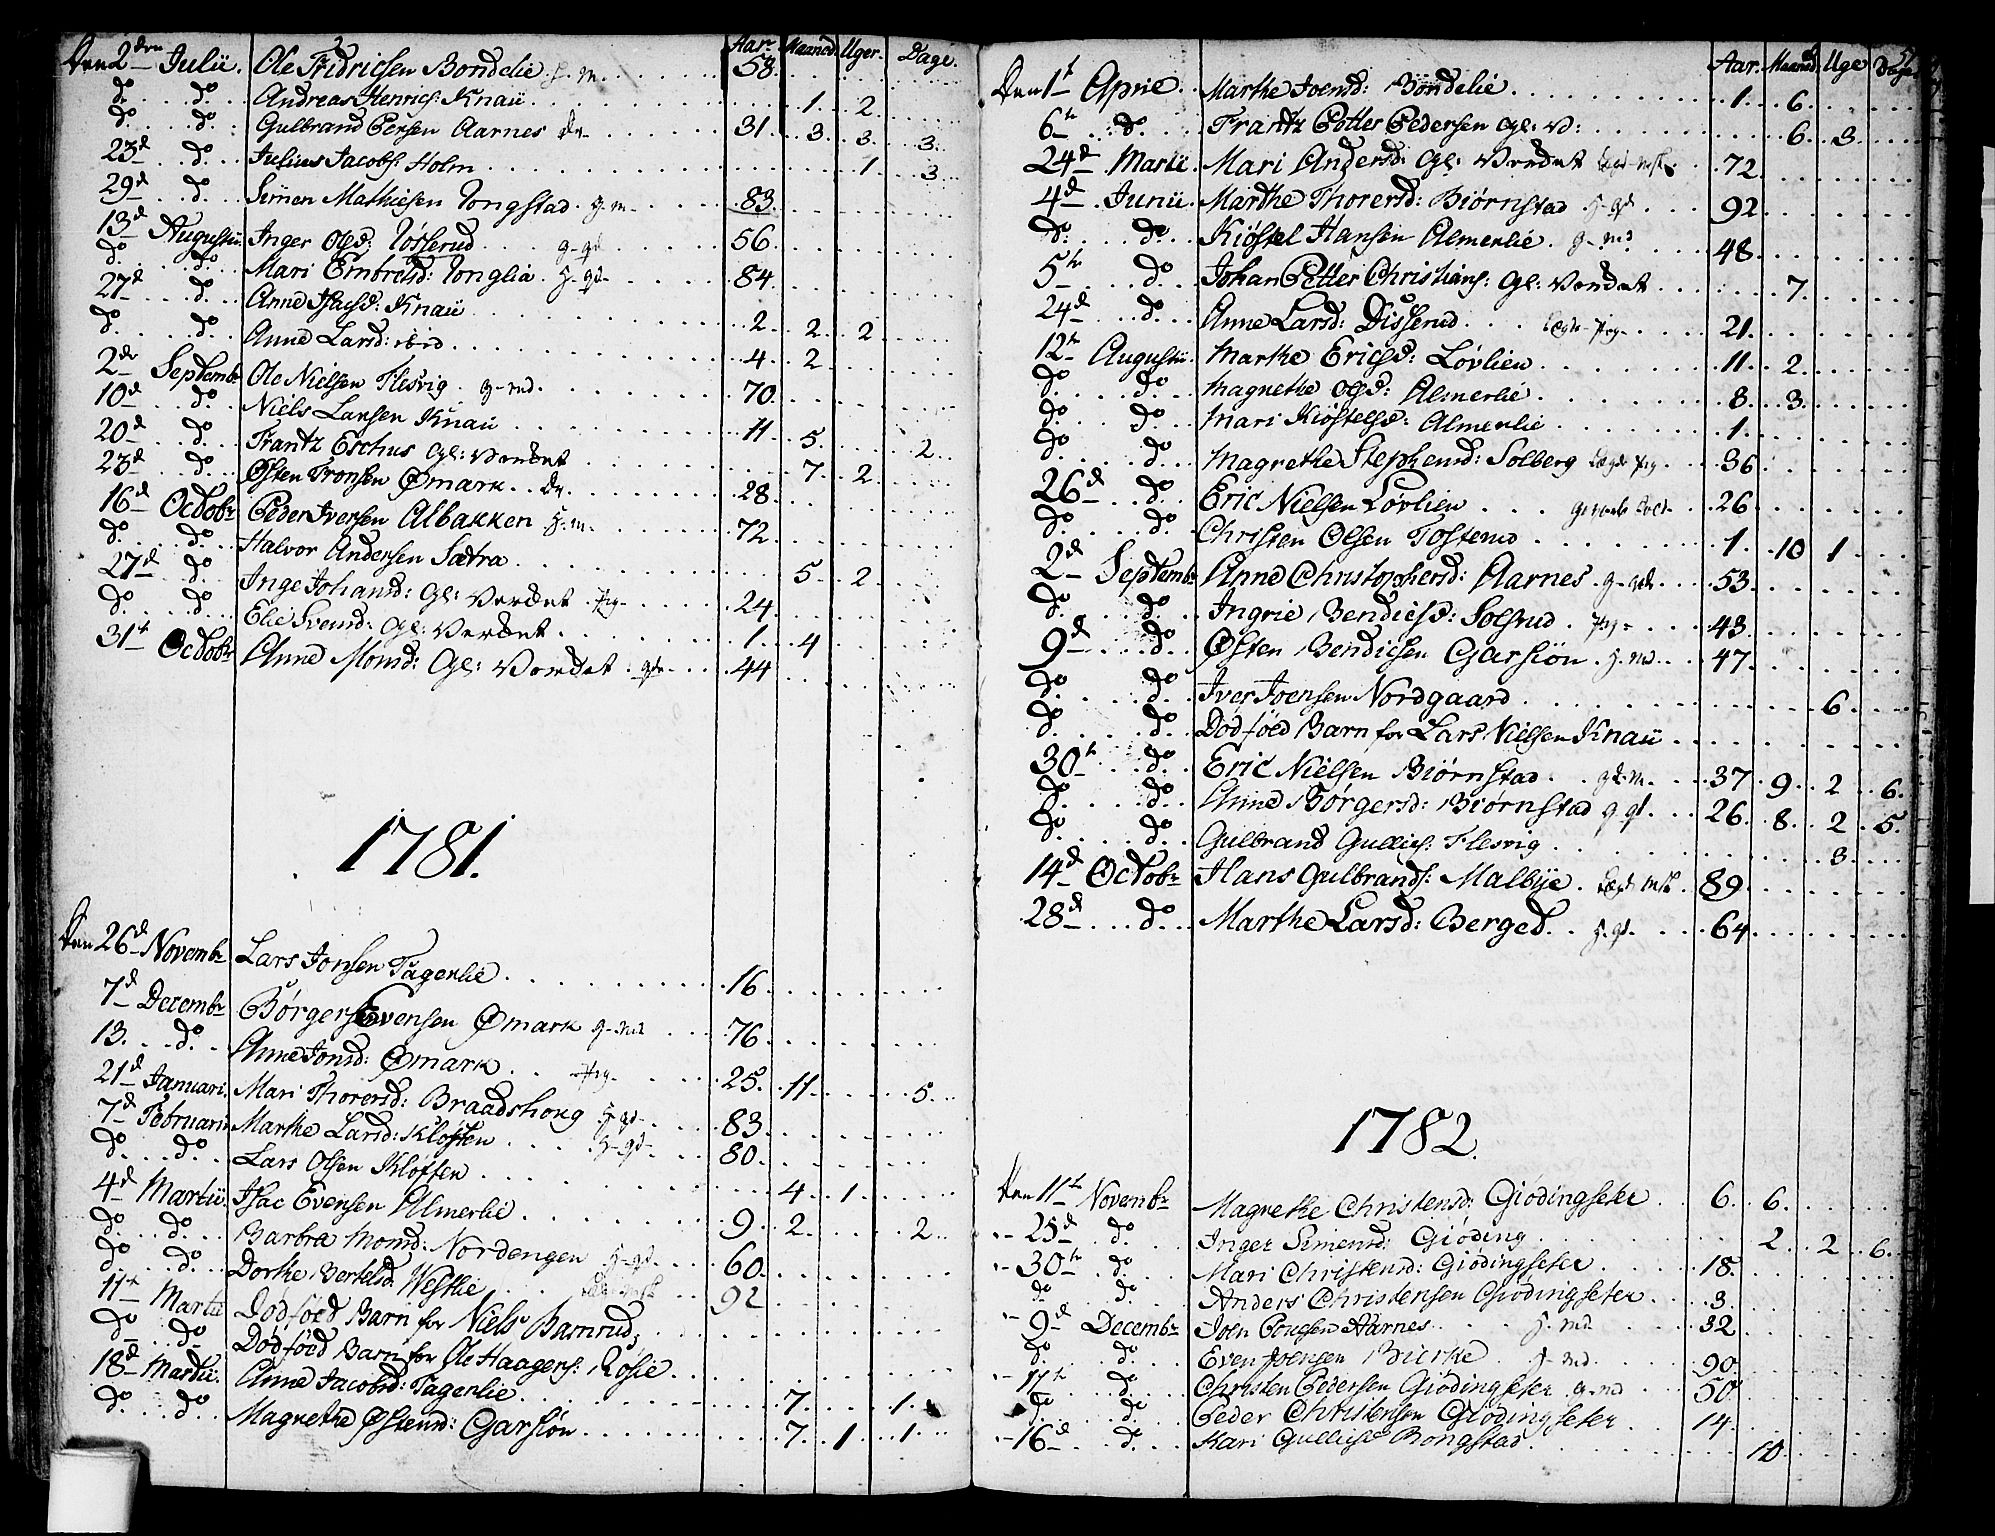 Aar. Maaned. Uger. Dage.
Den 2den Julii. Ole Fridrichsen Bondelie. g. m. 58.
do do Andreas Henrichs: Knaü 1. 2.
do do Gulbrand Persen Aarnes dr. 31. 3. 3. 3.
23d do Julius Jacobs: Holm 1. 3.
29d do Simen Mathiesen Tongstad. g. m. 83.
13d Augustii Inger Olsd: Tosserud g-gd 56.
do do Mari Embretsd: Tonglia g-gd- 84.
27d do Anne Isacsd: Knaü 2. 2. 2.
do do Anne Larsd: ibid 4. 2.
2dn Septembr Ole Nielsen Flesvig g-md. 70.
10d do Niels Larsen Knaü 11. 5. 2.
20d do Frantz Eschus Gl: Verdet 7. 2.
23d do Østen Tronsen Ømark dr. 28.
16d Octobr Peder Iversen Albakken g.m. 72.
do do Halvor Andersen Sætra 5. 2.
27d do Inge Johansd: Gl: Verdet Pig- 24.
do do Elie Svensd: Gl: Verdet 1. 4.
31t Octobr Anne Monsd: Gl: Verdet gd- 44.
1781.
Den 26d Novembr Lars Jonsen Tagenlie 16.
7d Decembr Børger Evensen Ømark g-md 76.
13. do Anne Jonsd: Ømark Pig- 25. 11. 5.
21d Januari. Mari Thorersd: Braadshoug g-gd- 83.
7d Februari Marthe Larsd: Kløften g-gd- 80.
do do Lars Olsen Kløften 4. 1.
4d Martii Isac Evensen Almerlie 9. 2. 2.
do do Barbra Monsd: Nordengen g-gd. 60.
do do Dorthe Bertelsd: Westlie 92
11t Martii Dødføed Barn for Niels Bamrud;
do do Dødføed Barn for Ole Haagens: Rosie
18d Martii. Anne Jacobsd: Tagenlie 7. 1.
do do Magnethe Østensd: Garsiøn 7. 1. 1.
Aar. Maaned. Uge Dage
Den 1t April Marthe Joensd: Bondelie 1. 6.
6t do Frantz Petter Pedersen Gl: V: 6. 3.
24d Martii Mari Andersd: Gl: Verdet Legd-msk. 72.
4d Junii. Marthe Thorersd: Biørnstad g-gd 92.
do do Kiøstel Hansen Almerlie. g-md 48.
5t do Johan Petter Christians: Gl: Verdet 7.
24d do Anne Larsd: Disserud Legds-Pig- 21.
12t Augustii. Marthe Ericsd: Løvlien 11. 2.
do do Magnethe Olsd: Almerlie 8. 3.
do do Mari Kiøstelsd: Almerlie 1.
do do Magrethe Stephensd: Solberg Legds Pig. 36.
26d do Eric Nielsen Løvlien 26.
do do Christen Olsen Tosterud 1. 10 1
2d Septembr Anne Christophersd: Aarnes g-gd. 53.
do do Ingrie Bendicsd: Solsrud Pig- 43.
9d do Østen Bendicsen Garsiøn. g. md. 47.
do do Iver Joensen Nordgaard 6.
do do Dødføed Barn for Lars Nielsen Knaü
30t do Eric Nielsen Biørnstad gd.m. 37 9. 2 6.
do do Anne Børgersd: Biørnstad g gd. 26. 8. 2 5.
do do Gulbrand Gullics: Flesvig 3.
14d Octobr Hans Gulbrands: Malbye Legds msk. 89.
28d do Marthe Larsd: Berged. g.gd. 64.
1782.
Den 11t Novembr Magrethe Christensd: Giødingseter 6. 6.
25d do Inger Simensd: Giøding 2. 2. 6.
30t do Mari Christensd: Giødingseter 18.
do do Anders Christensen Giødingseter 3.
9d Decembr Joen Poulsen Aarnes g. md. 32
do do Even Joensen Bierke g-md. 90
11t do Christen Pedersen Giødingseter g-md 50
do do Peder Christensen Giødingseter 14.
16d do Kari Gullicsd Bongstad. 10